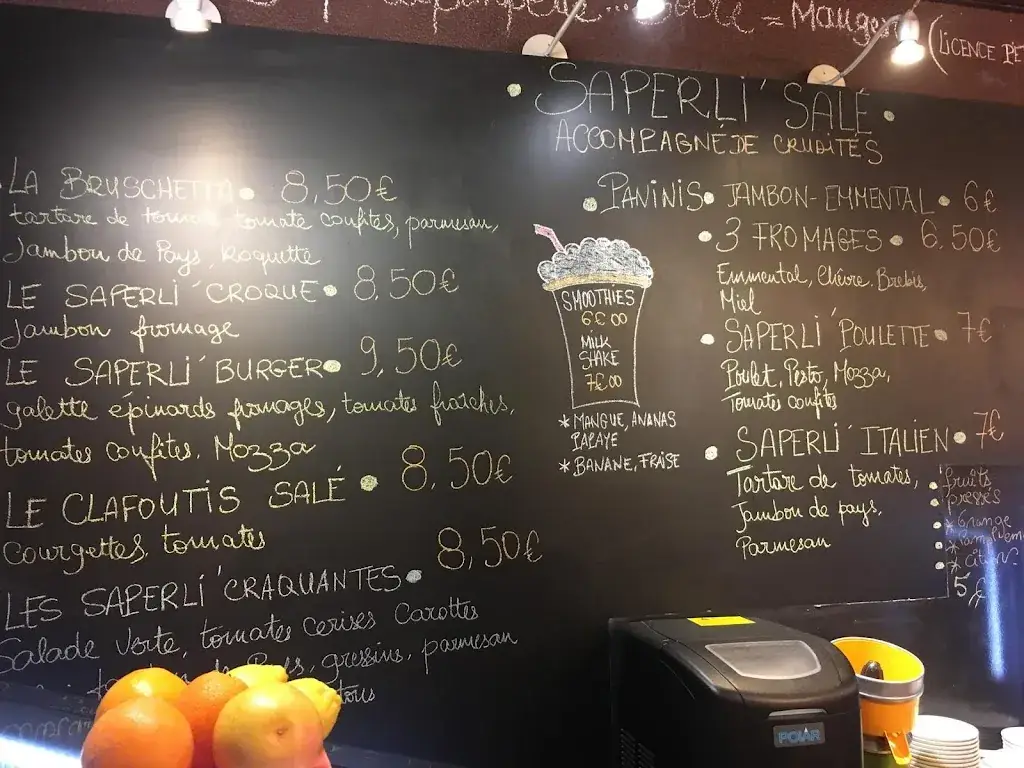 = Mauger (LICENCE PE
SAPERLI'SALÉ
ACCOMPAGNÉ DE CRUDITÉS
LA BRUSCHETTA 8,50€
tartare de tomate tomate confites, parmesan,
Jambon de Pays, Roquette
LE SAPERLI'CROQUE 8,50€
Jambon fromage
LE SAPERLI'BURGER 9,50€
galette épinards fromages, tomates fraîches,
tomates confites, Mozza
LE CLAFOUTIS SALÉ 8,50€
Courgettes, tomates
LES SAPERLI'CRAQUANTES 8,50€
Salade verte, tomates cerises Carottes
gressins, parmesan
PANINIS JAMBON-EMMENTAL 6€
3 FROMAGES 6.50€
Emmental, Chèvre, Brebis,
Miel
SAPERLI'POULETTE 7€
Poulet, Pesto, Mozza,
Tomates confites
SAPERLI'ITALIEN 7€
Tartare de tomates,
Jambon de pays,
Parmesan
SMOOTHIES
6€00
MILK
SHAKE
7€00
* MANGUE, ANANAS
PAPAYE
* BANANE, FRAISE
fruits
pressés
* Orange
5€
POLAR